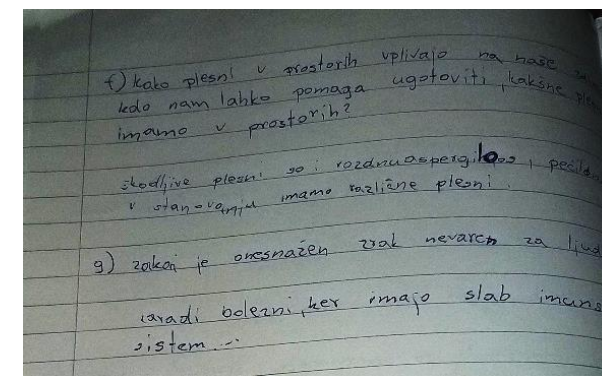 f) kako plesni v prostorih vplivajo na naše
kdo nam lahko pomaga ugotoviti, kakšne
imamo v prostorih?
škodljive plesni so:
v stanovanju imamo različne plesni.
g) zakaj je onesnažen zrak nevaren za ljud
zaradi bolezni, ker imajo slab imuns
sistem...